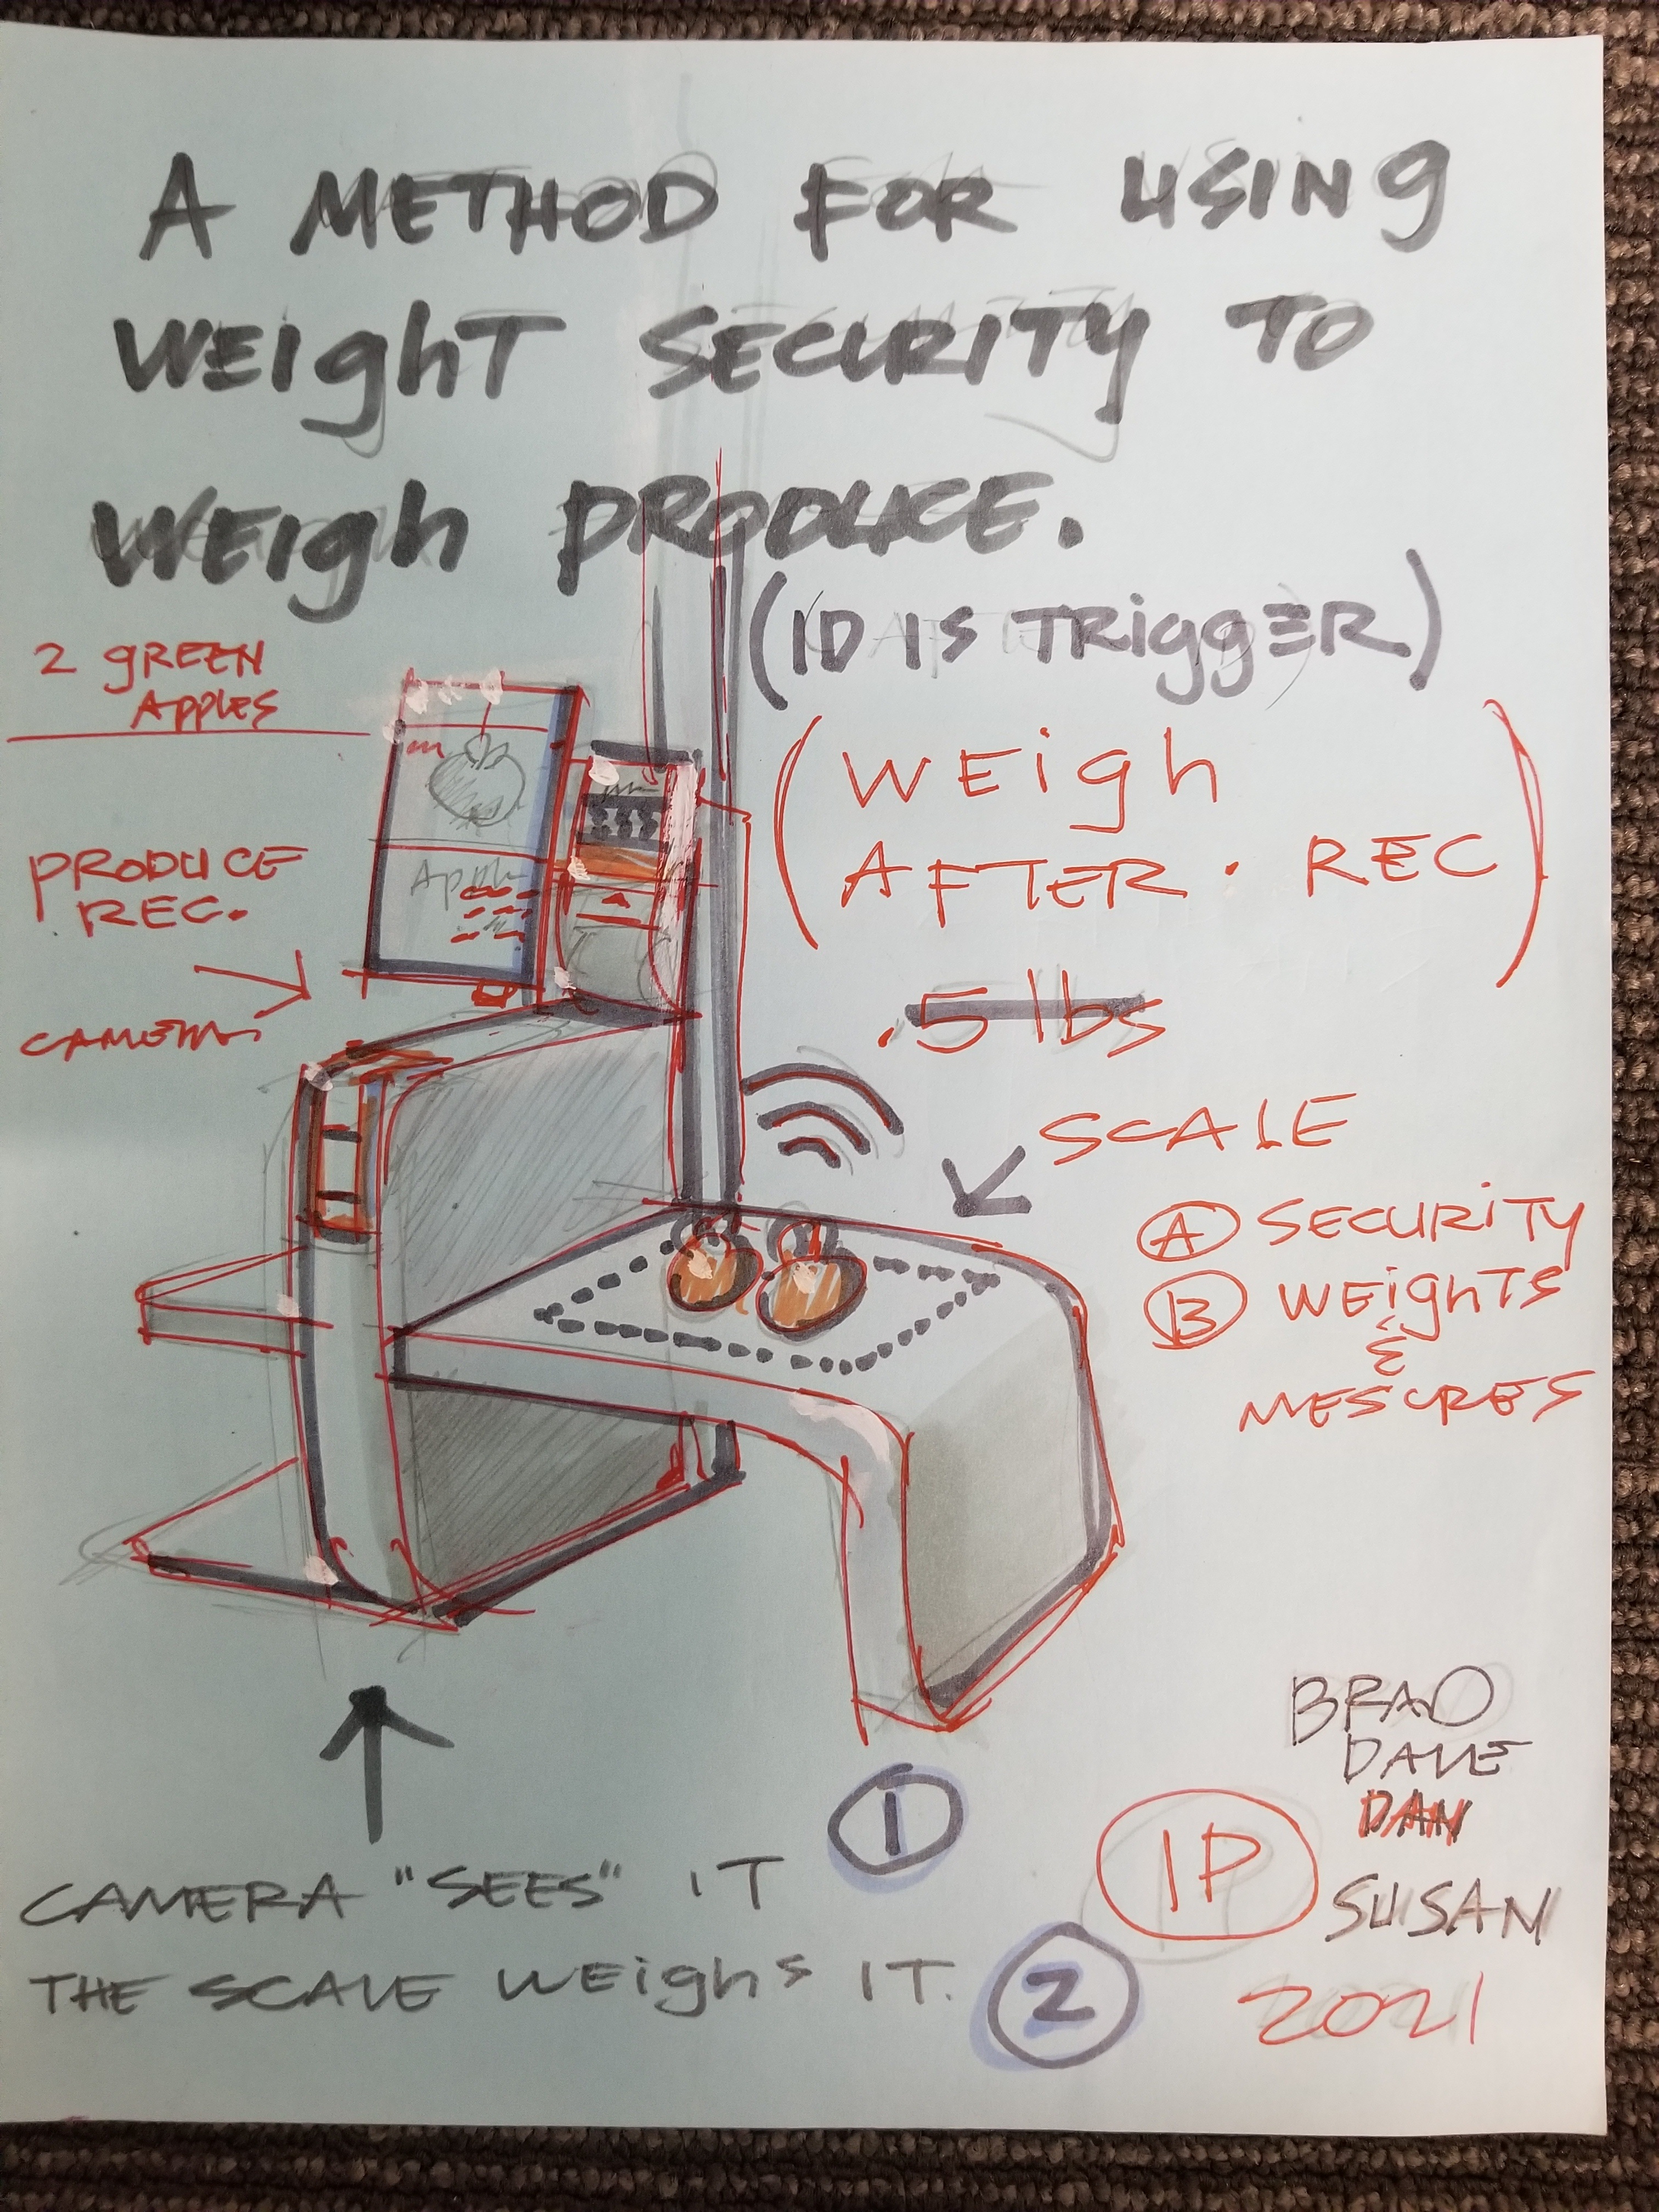 A METHOD FOR USING
WEIGHT SECURITY TO
WEIGH PRODUCE.
(ID IS TRIGGER)
2 GREEN
APPLES
(WEIGH
AFTER. REC)
PRODUCE
REC.
CAMERA
Apple
.5 lbs
SCALE
A SECURITY
B WEIGHTS
&
MESURES
BRAD
DAVE
DAN
SUSAN
IP
2021
CAMERA "SEES" IT 1
THE SCALE WEIGHS IT. 2